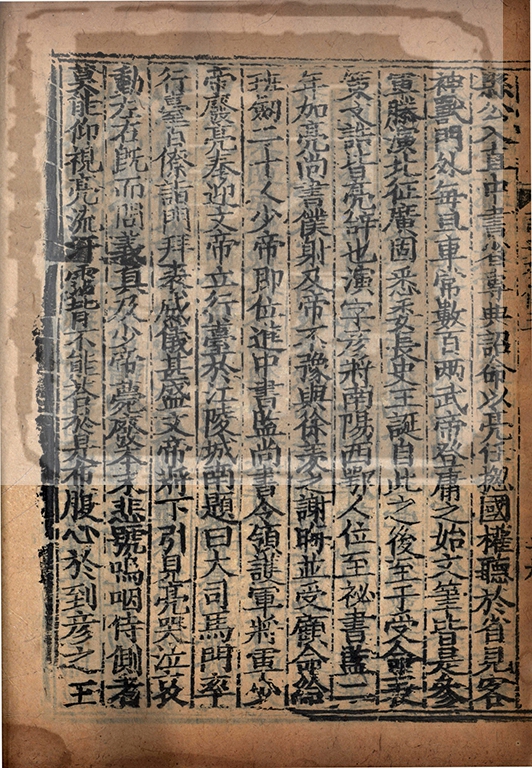 縣公入直中書省專典詔命以亮任揔國權聽於省見客
神獸門外每旦車常數百兩武帝登庸之始文筆皆是參
軍滕演北征廣固悉委長史王誕自此之後至于受命表
策文誥皆亮辭也演字彦將南陽西鄂人位至祕書監二
年加亮尚書僕射及帝不豫與徐羨之謝晦並受顧命給
班劒二十人少帝即位進中書監尚書令領護軍將軍少
帝廢亮奉迎文帝立行臺於江陵城南題曰大司馬門率
行臺百僚詣門拜表威儀甚盛文帝將下引見亮哭泣哀
動左右既而問義真及少帝薨廢本末悲號嗚咽侍側者
莫能仰視亮流汗霑背不能荅於是布腹心於到彦之王